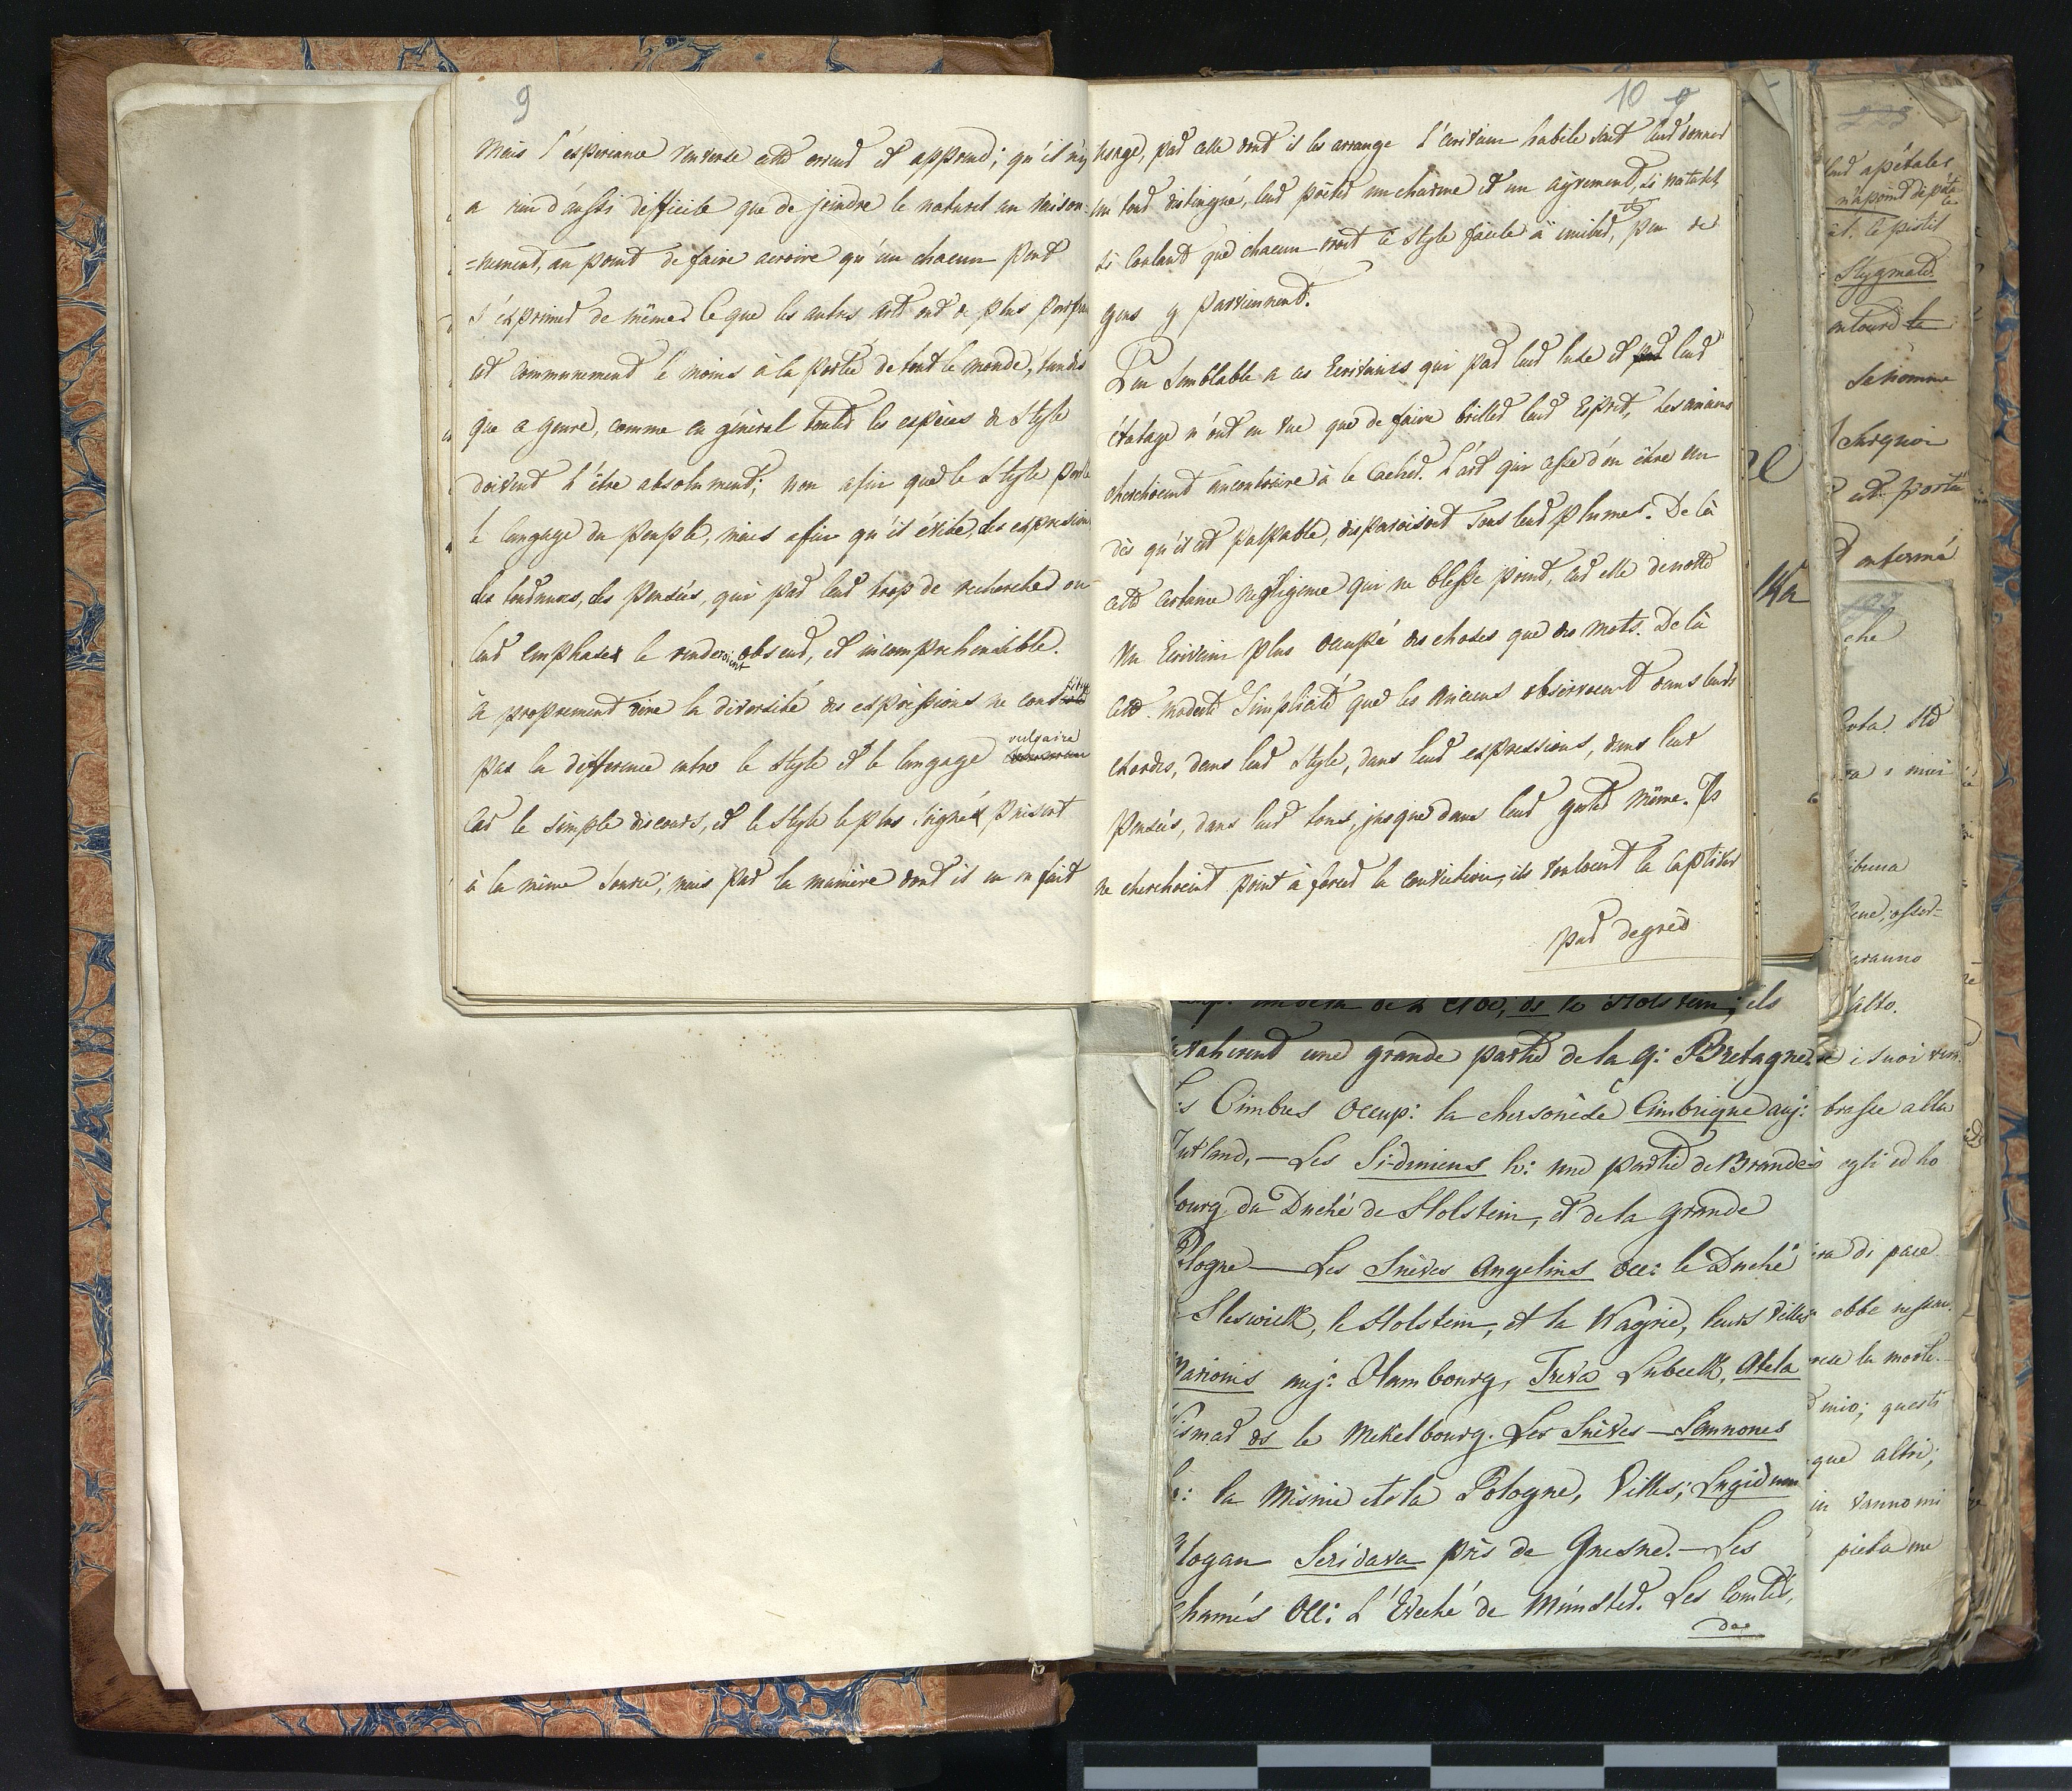 9
Mais l'esperience renverse cette erreur et apprend; qu'il n'y
a rien d'aussi difficile que de joindre le naturel au raison-
=nement, au point de faire accroire qu'un chacun peut
s'exprimer de même. Ce que les autres arts ont de plus parfait
est communement le moins à la portée de tout le monde, tandis
que ce genre, comme en général toutes les espèces de Style
doivent l'être absolument; non afin que le Style parle
le langage du peuple, mais afin qu'il évite, des expressions
des tournures, des pensées, qui par leur trop de recherches ou
leur emphase le renderoient obscur, et incomprehensible.
à proprement dire la diversité des expressions ne constitue
pas la difference entre le Style et le langage vulgaire
Car le simple discours, et le Style le plus soigné puisent
à la même source; mais par la manière dont il en fait
10
usage, par celle dont il les arrange l'ecrivain habile sait leur donner
un tour distingué, leur prêter un charme et un agrement, si naturel,
si coulant que chacun croit ce style facile à imiter, et peu de
gens y parviennent.
Peu semblable a ces Ecrivains qui par leur luxe et leur
étalage n'ont en vue que de faire briller leur Esprit, les anciens
cherchoient aucontraire à le cacher. L'art qui cesse d'en être un
dès qu'il est palpable, disparoisoit sous leur plumes. De là
cette certaine negligence qui ne blesse point, car elle denotte
un Ecrivain plus occupé des choses que des mots. De là
cette modeste Simplicité que les Anciens observoient dans leurs
exordes, dans leur Style, dans leur expressions, dans leur
pensées, dans leur tons, jusque dans leur gestes même. Ils
ne cherchoient point à forcer la conviction, ils vouloient la captiver
par degrés
de le Holstein; ils
envahirent une grande partie de la G: Bretagne.
Les Cimbres occup: la chersonèse Cimbrique auj:
Jutland, — Les Sidiniens h: une partie de Brande
bourg du Duché de Holstein, et de la grande
Pologne — Les Suèves Angelins occ: le Duché
Sleswick, le Holstein, et la Wagrie, leurs villes
Marionis auj: Hambourg, Treva Lubeck, Alela
Wismar ds le Mekelbourg. Les Suèves — Semnones
h: la Misnie et la Pologne, Villes; Lugidunum
Glogau Seridava près de Gnesne. — Les
Chamés occ: l'Eveché de Münster. Les Comtés,
des
apétales
n'a point de pétales
et le pistil
Stygmate
entouré le
Se nomme
Surquoi
est porté
enfermé
che
tribuna
saranno
l'alto.
i suoi
alla
egli ed ho
di pace
ebbe nessun
la morte.
questi
que altri;
in vanno mi